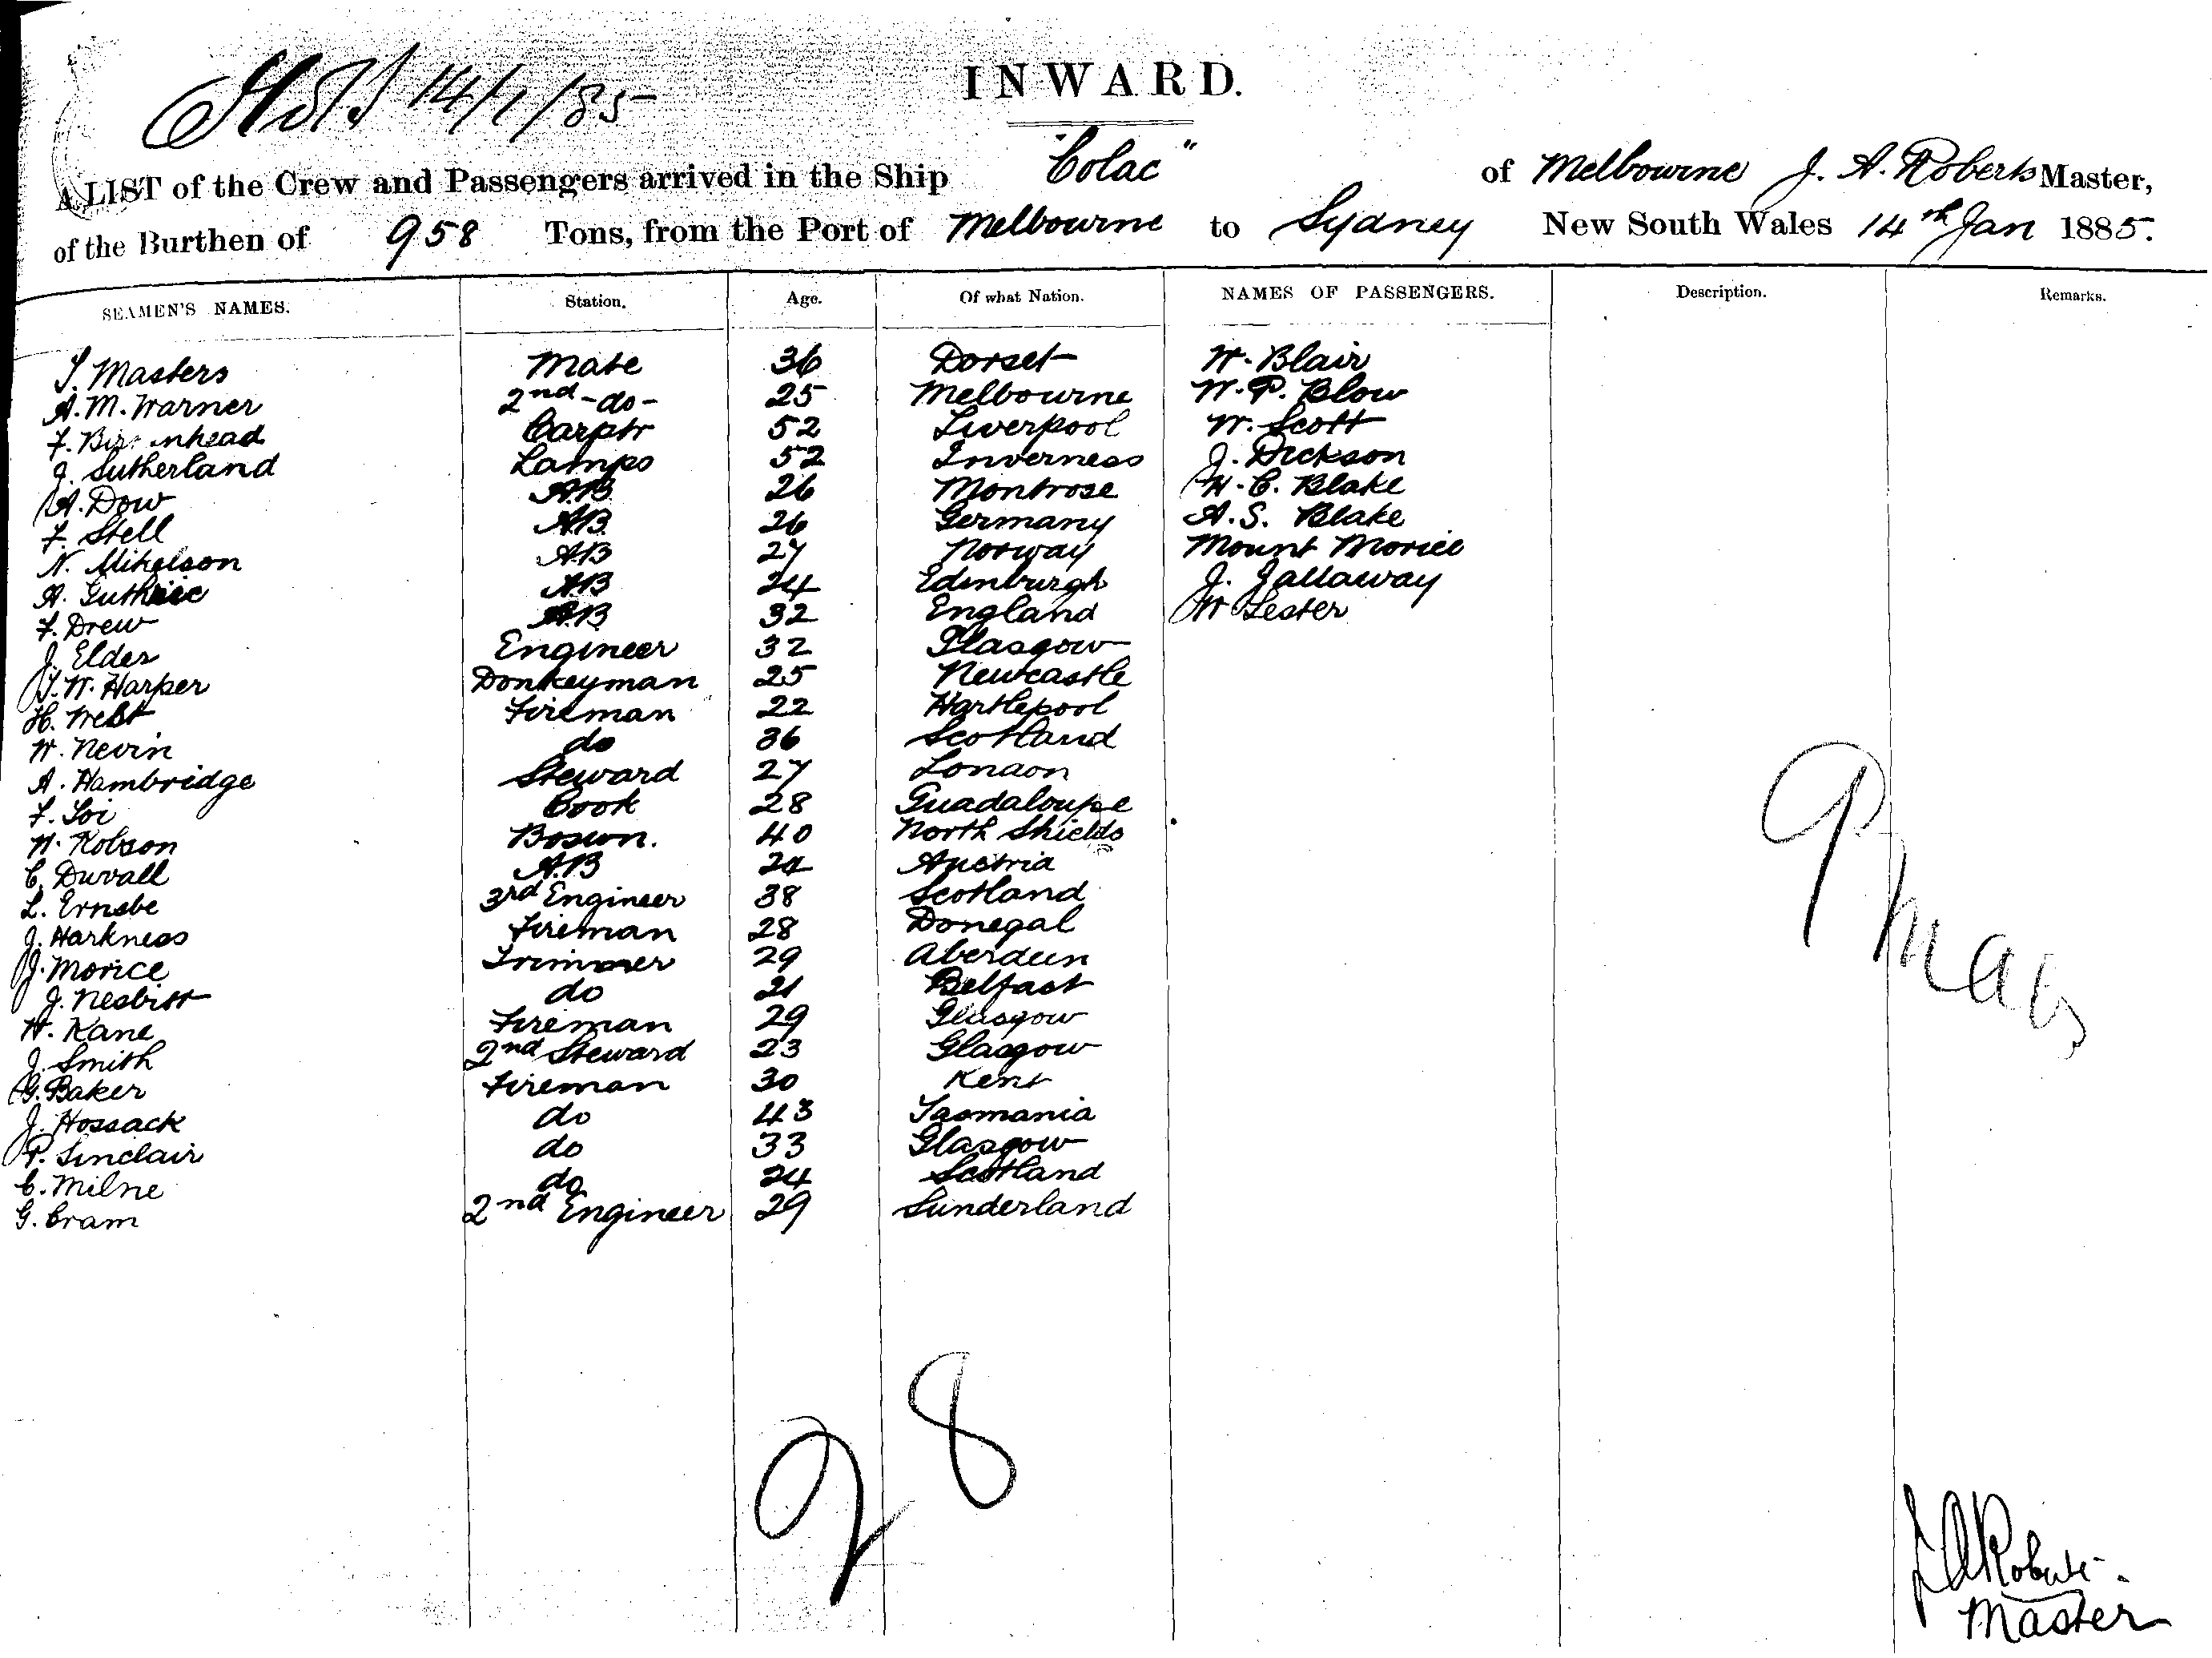 14/1/85
INWARD.
A LIST of the Crew and Passengers arrived in the Ship "Colac" of Melbourne J. A. Roberts Master,
of the Burthen of 958 Tons, from the Port of Melbourne to Sydney New South Wales 14th Jan 1885.
SEAMEN'S NAMES. Station. Age. Of what Nation. NAMES OF PASSENGERS. Description. Remarks.
Masters Mate 36 Dorset W. Blair
A. M. Warner 2nd -do- 25 Melbourne W. P. Blow
F. Carptr 52 Liverpool W. Scott
J. Sutherland Lamps 52 Inverness J. Dickson
A. Dow AB 26 Montrose C. Blake
F. Stell AB 26 Germany A. S. Blake
N. Mikelson AB 27 Norway Mount Morice
A. Guthrie AB 24 Edinburgh J. Jallaway
F. Drew AB 32 England W Lester
J. Elder Engineer 32 Glasgow
W. Harper Donkeyman 25 Newcastle
H. West Fireman 22 Hartlepool
W. Nevin do 36 Scotland
A. Hambridge Steward 27 London
F. Cook 28 Guadaloupe
W. Robson Bosun. 40 North Shields
C. Duvall AB 24 Austria
L. Ernebe 3rd Engineer 38 Scotland
J. Harkness Fireman 28 Donegal
J. Morice Trimmer 29 Aberdeen
J. Nesbitt do 21 Belfast
Kane Fireman 29 Glasgow
J. Smith 2nd Steward 23 Glasgow
G. Baker Fireman 30 Kent
J. Hossack do 43 Tasmania
P. Sinclair do 33 Glasgow
C. Milne do 24 Scotland
G. Cram 2nd Engineer 29 Sunderland
9
28
J A Roberts
Master